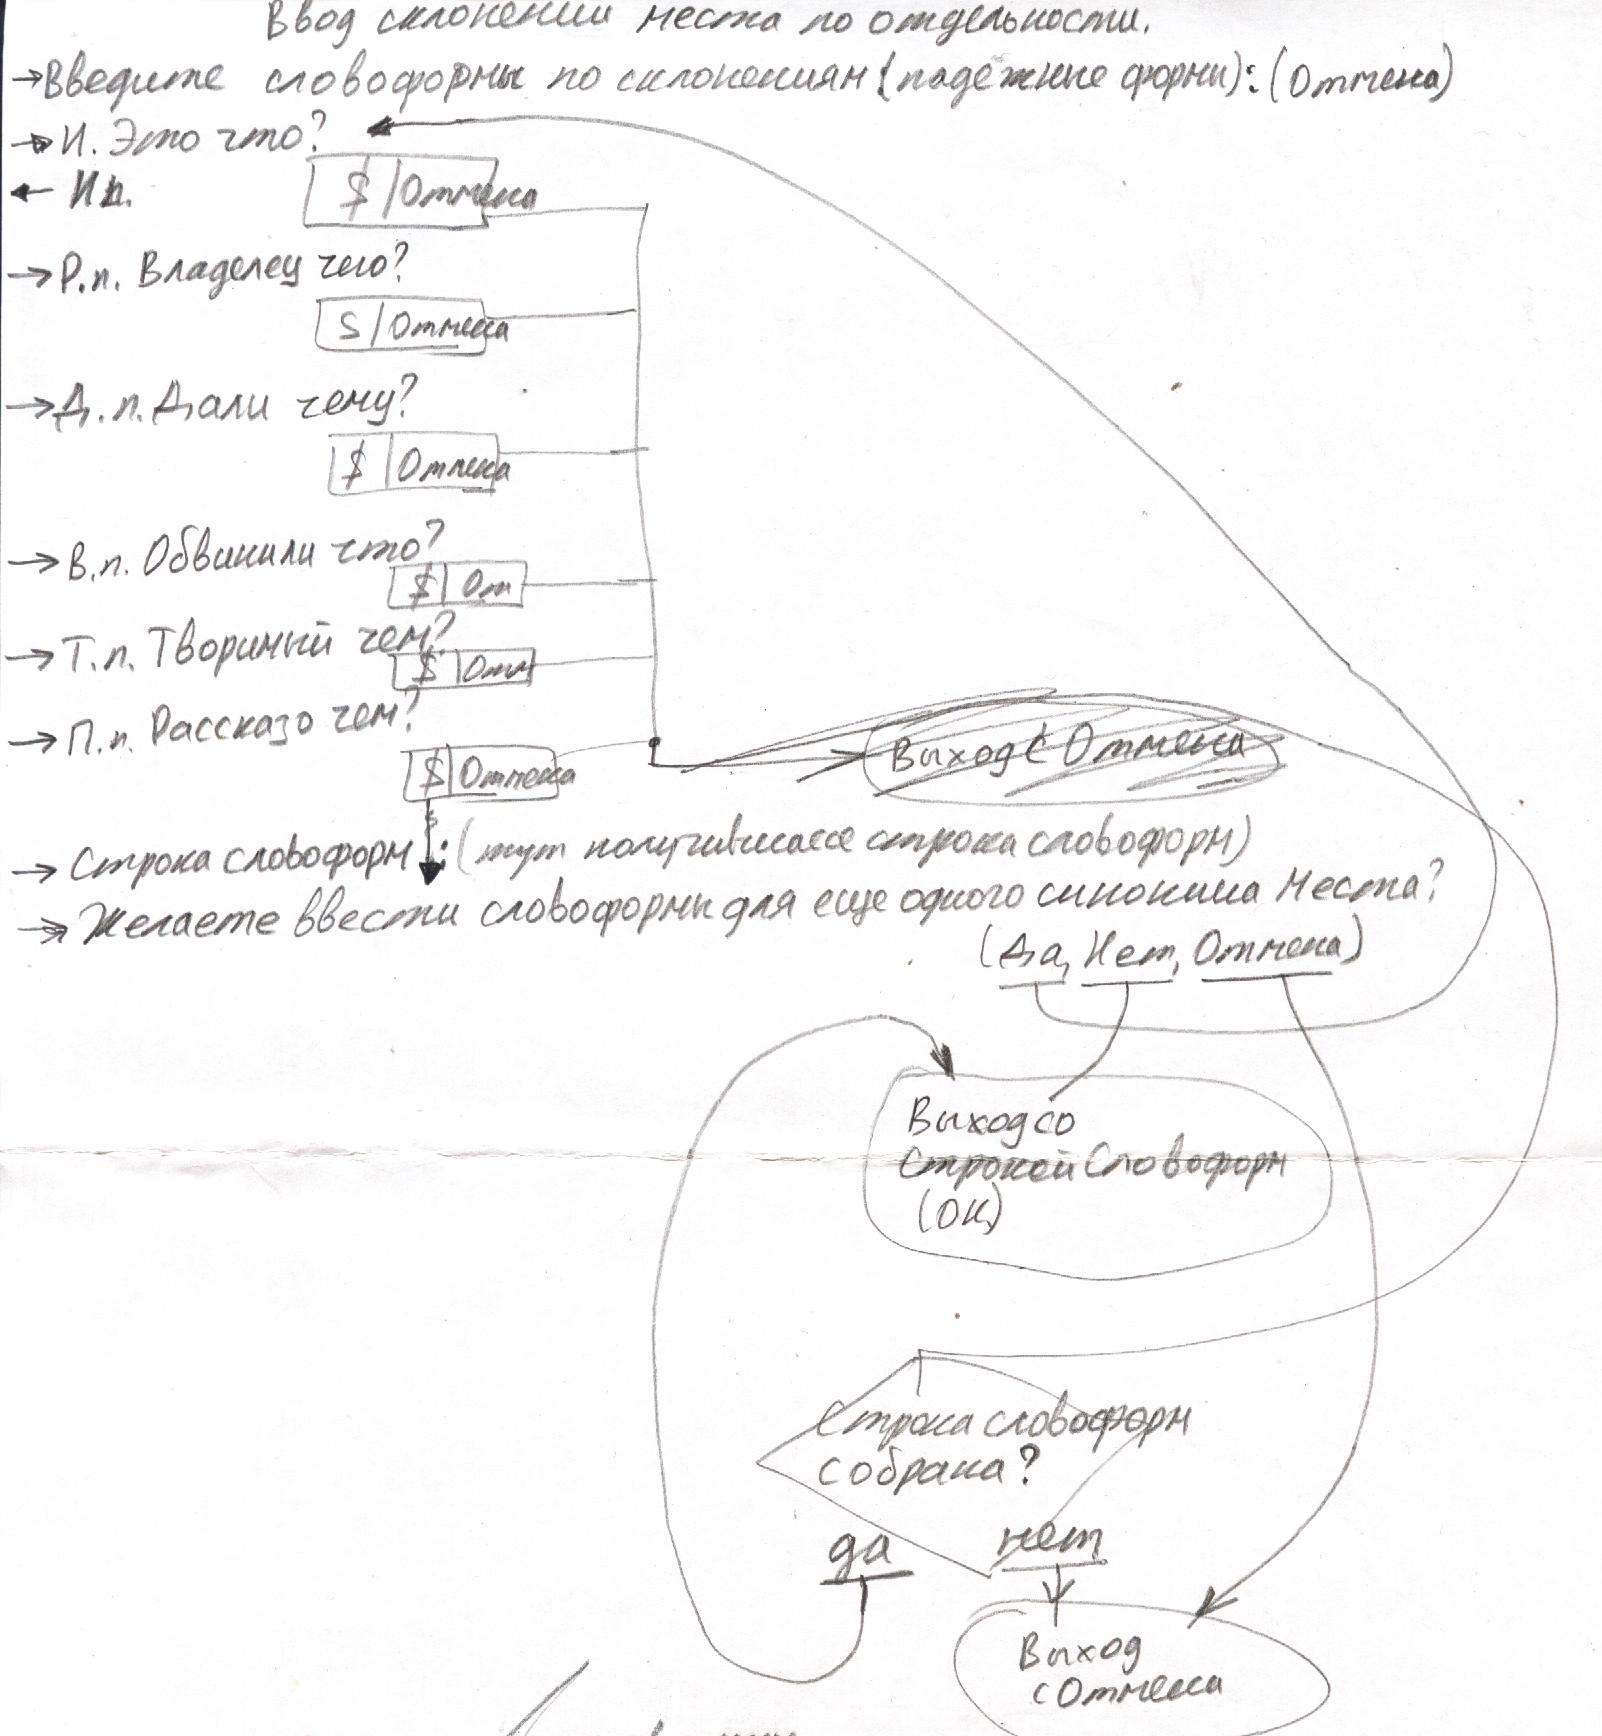 Ввод склонений места по отдельности.
→Введите словоформы по склонениям (падежные формы): (Отмена)
→ И. Это что?
← Ип.
$ | Отмена
→ Р.п. Владелец чего?
S | Отмена
→ Д.п. Дали чему?
$ | Отмена
→ В.п. Обвинили что?
$ | От
→ Т.п. Творимый чем?
$ | Отм
→ П.п. Рассказ о чем?
$ | Отмена
Выход с Отмена
→ Строка словоформ: (тут получившаяся строка словоформ)
→ Желаете ввести словоформы для еще одного синонима места?
(Да, Нет, Отмена)
Выход со
Строкой Словоформ
(ОК)
Строка словоформ
собрана?
да нет
Выход
с Отмена